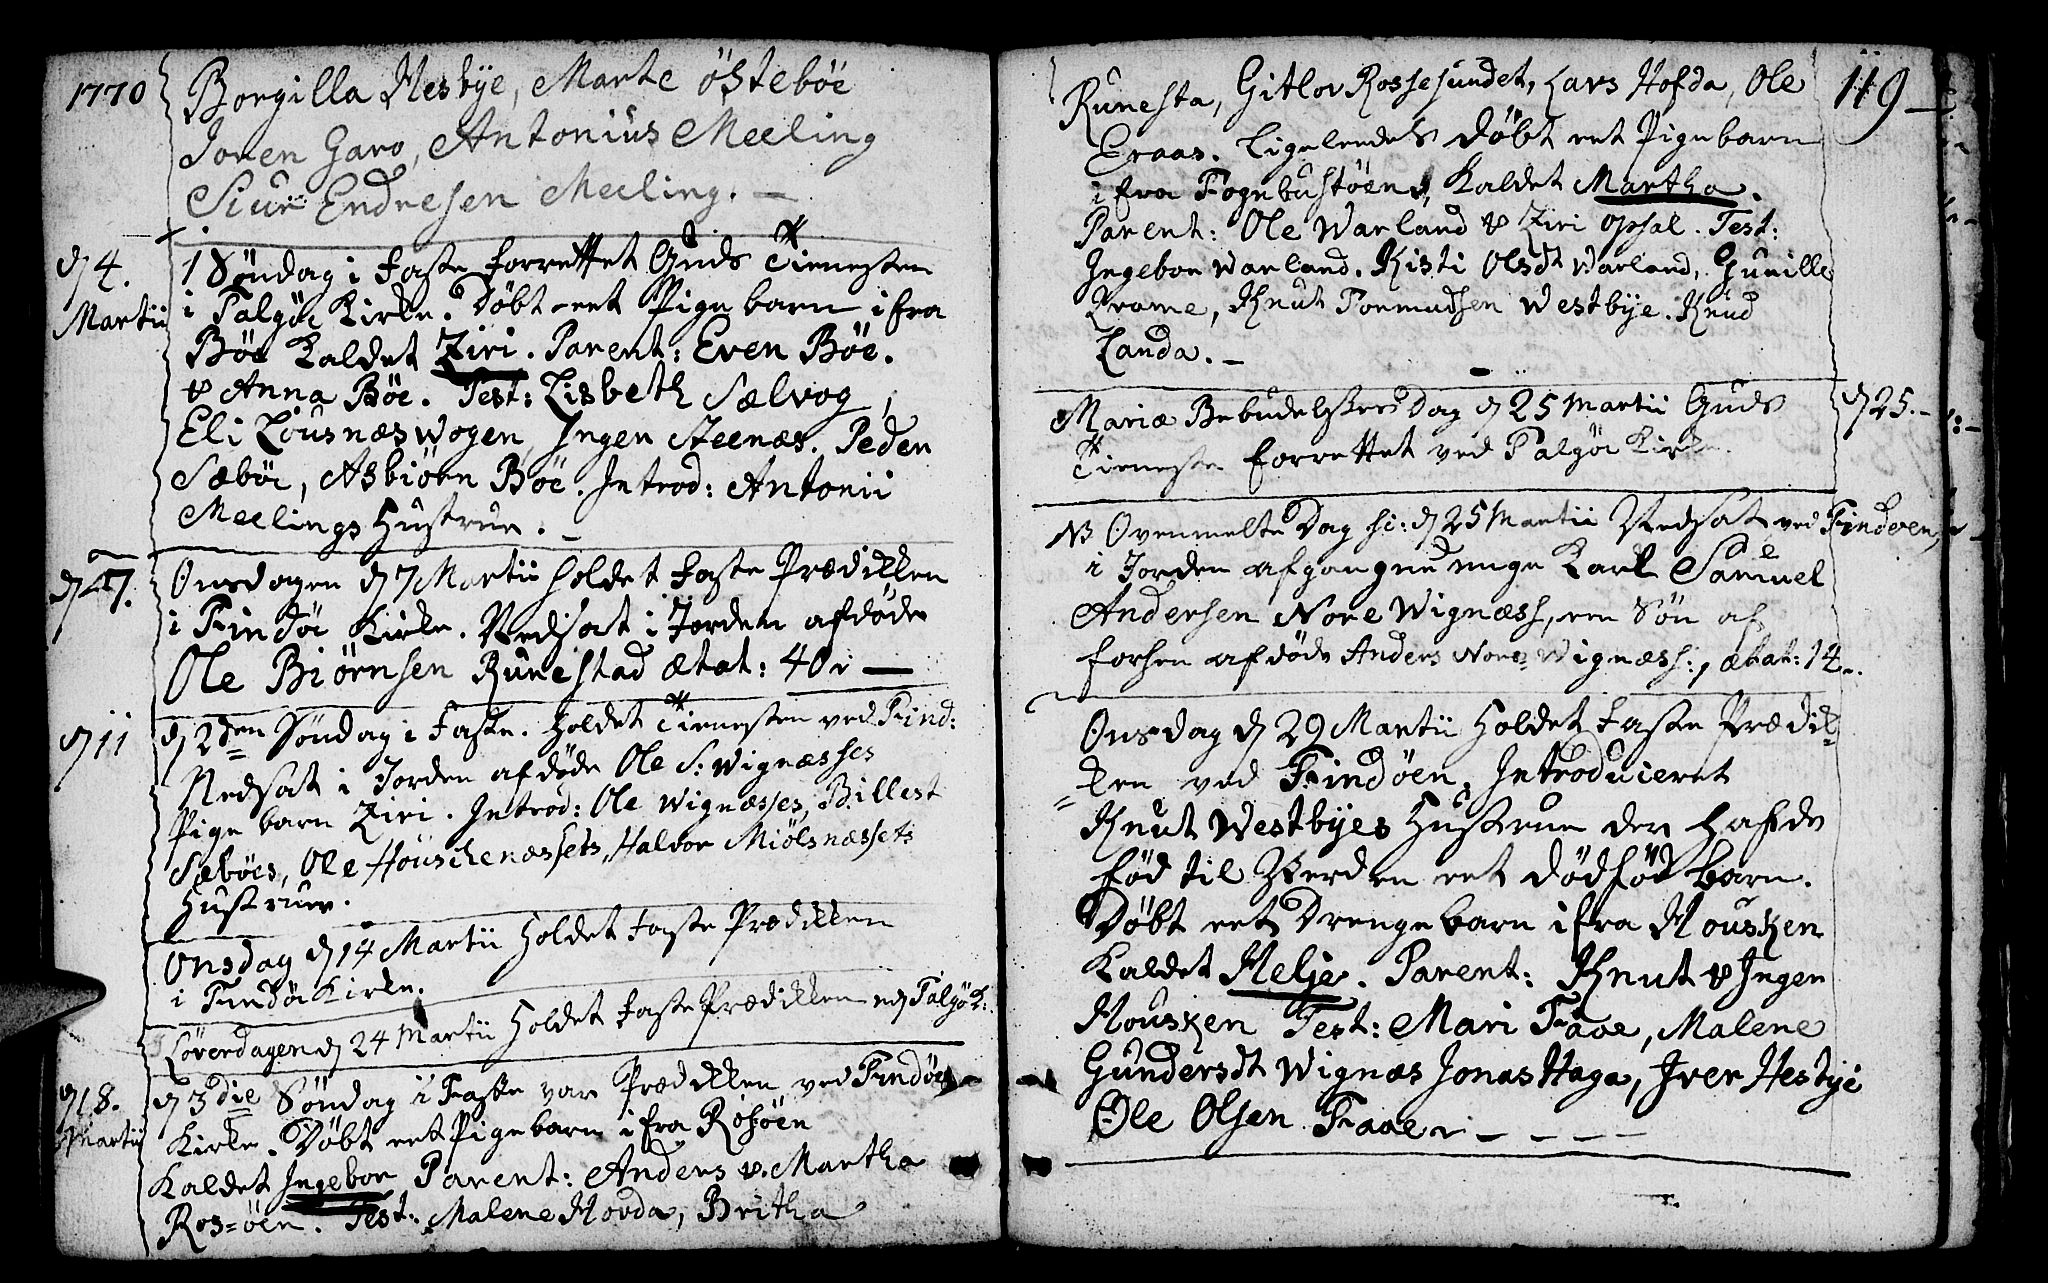 1770
Borgilla Hesbye, Marte östeböe
Joren Garo, Antonius Meeling
Siur Endresen Meeling. —
d 4. Martii
1 Söndag i Faste forrettet Guds Tienesten
i Talgöe Kirke. Döbt eet Pige barn ifra
Böe kaldet Ziri. Parent: Even Böe.
& Anna Böe. Test: Lisbeth Sælvog,
Eli Lousnæs wogen, Inger Steenæs. Peder
Sæböe, Asbiörn Böe. Introd: Antonii
Meelings Hustrue. —
d 7.
Onsdagen d 7 Martii holdet Faste Prædikken
i Findöe Kirke. Nedsat i Jorden afdöde
Ole Biörnsen Runestad ætat: 40 —
d 11
d 2den Söndag i Faste. holdet Tienesten ved Find:
Nedsat i Jorden afdöde Ole S: Wignæsses
Pige barn Ziri. Introd: Ole Wignæsses, Billest
Sæböes, Ole Houschenæssets, Halvor Miölsnæssets
Hustruer.
Onsdag d 14 Martii holdet Faste Prædikken
i Findöe Kirke.
Löverdagen d 24 Martii holdet Faste Prædikken ved Talgö K:
d 18. Martii
d 3die Söndag i Faste var Prædikken ved Findöe
Kirke. Döbt eet Pige barn ifra Rosöen
kaldet Ingebor Parent: Anders & Martha
Ros=öen. Test: Malene Hovda, Britha
119
Runesta, Gitlov Rossesundet, Lars Hofda, Ole
Eraas. Ligeleedes döbt eet Pige barn
ifra Fognbustöen, kaldet Martha.
Parent: Ole Warland & Ziri opsal. Test:
Ingebor Warland. Kisti Olsdt Warland, Gunille
Krame, Knut Tormudsen Westbye. Knud
Landa. —
d 25. —
Mariæ Bebudelsses Dag d 25 Martii Guds
Tieneste forrettet ved Talgöe Kirke.
NB Ovenmelte Dag sc: d 25 Martii Nedsat ved Findöen,
i Jorden afgangne unge Karl Samuel
Andersen Nore Wignæss, een Sön af
forhen afdöde Anders Nore Wignæss:, ætat: 14.
Onsdag d 29 Martii holdet Faste Prædik=
ken ved Findöen. Introduceret
Knut Westbyes Hustrue der hafde
föd til Werden eet dödföd barn.
Döbt eet Drengebarn ifra Housken
kaldet Helje. Parent: Knut & Inger
Housken Test: Mari Faae, Malene
Gundersdt Wignæs Jonas Haga, Iver Hesbye
Ole Olsen Faae —